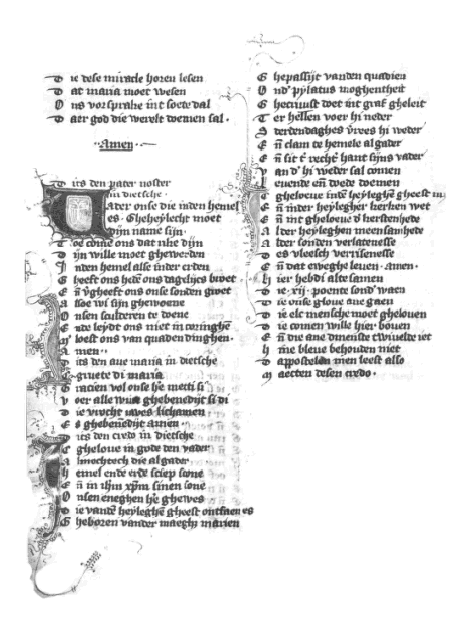 Die dese miracle horen lesen
Dat maria moet wesen
Ons vorsprake int soete dal
Daer god die werelt doemen sal .
.Amen.
Dits den pater noster
in dietsche .
Vader onse die inden hemel
es . Gheheylecht moet
dijn name sijn .
Toe come ons dat rike dijn
Dijn wille moet ghewerden
Inden hemel alse inder erden
Gheeft ons hedē ons dagelijcs broet
Eñ v̄gheeft ons onse sonden groet
Alsoe wi sijn ghewoene
Onsen sculderen te doene
Ende leydt ons niet in coringhē
Maer loest ons van quaden dinghen .
Amen .
Dits den aue maria in dietsche
Gegruete di maria
Gracien vol onse hē metti si
Voer alle wiue ghebenedijt si di
Die vrocht uwes lichamen
Es ghebenēdijt amen .
Dits den credo in dietsche
Ic gheloue in gode den vader
Almoghtech die algader
Hemel ende erde sciep sone
Eñ in ihm xpm sinen sone
Onsen eneghen hē ghewes
Die vandē heyleghē gheest ontfaen es
Gheboren vander maeght marien
Ghepassijt vanden quadien
Ond' pylatus moghentheit
Ghecruust doet int graf gheleit
Ter hellen voer hi neder
Derdendaghes v̄rees hi weder
Eñ clam te hemele algader
Eñ sit t' rechť hant sijns vader
Van d' hi weder sal comen
Leuende eñ dode doemen
Ic gheloeue indē heyleghē gheest
Eñ inder heyleghер kerken wet
Eñ int gheloeue d' kerstenhede
Alder heyleghen meensamhede
Alder sonden verlatenesse
Des vleesch verrisenesse
Eñ dat eweghe leuen . amen .
Hier hebdi alte samen
Die . xij . poente sond' waen
Die onse gloue aue gaen
Die elc mensche moet ghelouen
Die comen wille hier bouen
Eñ die ane dinenste twiuelde iet
Hine bleue behouden niet
Dapostelen men leest also
Maecten desen credo .